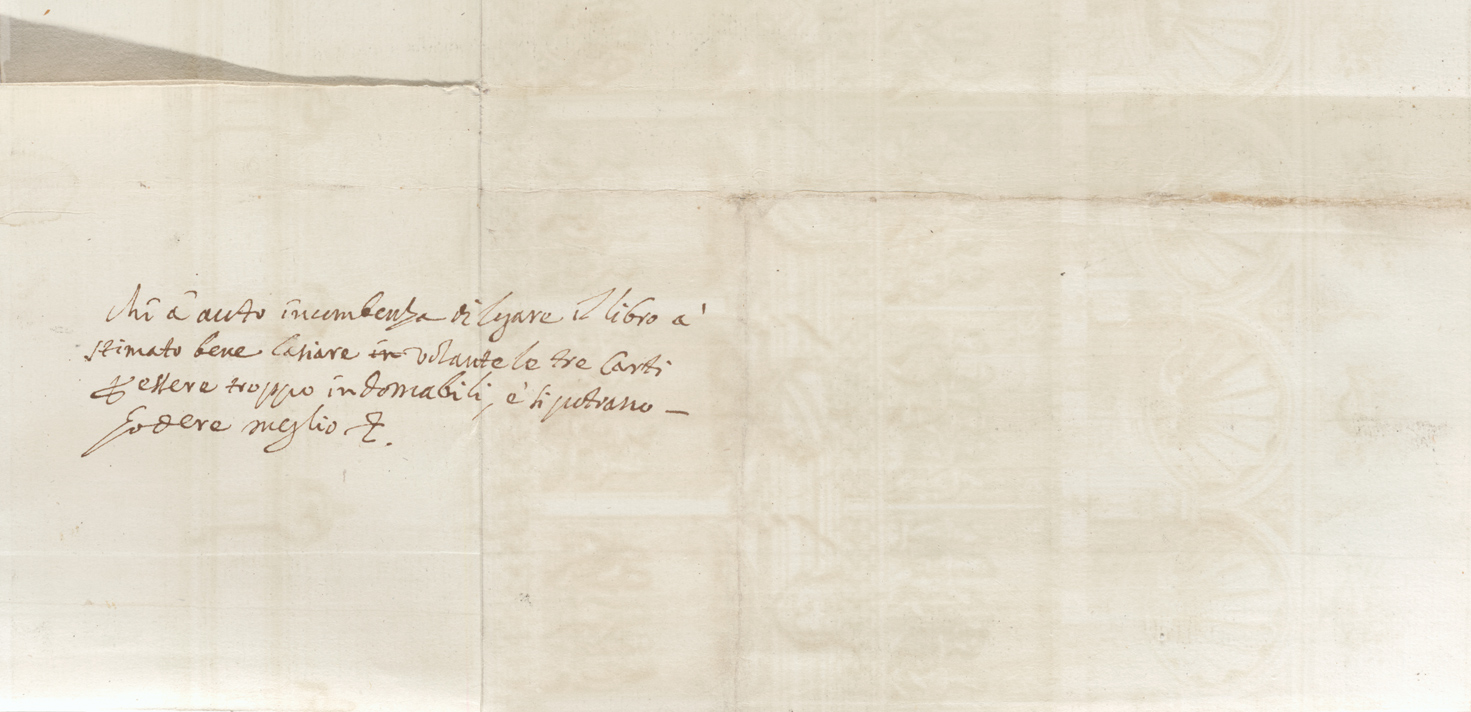 Chi à auto incumbenza di legare il libro a'
stimato bene lasiare in volante le tre Carti
p essere troppo indomabili, e si potrano –
godere meglio &.